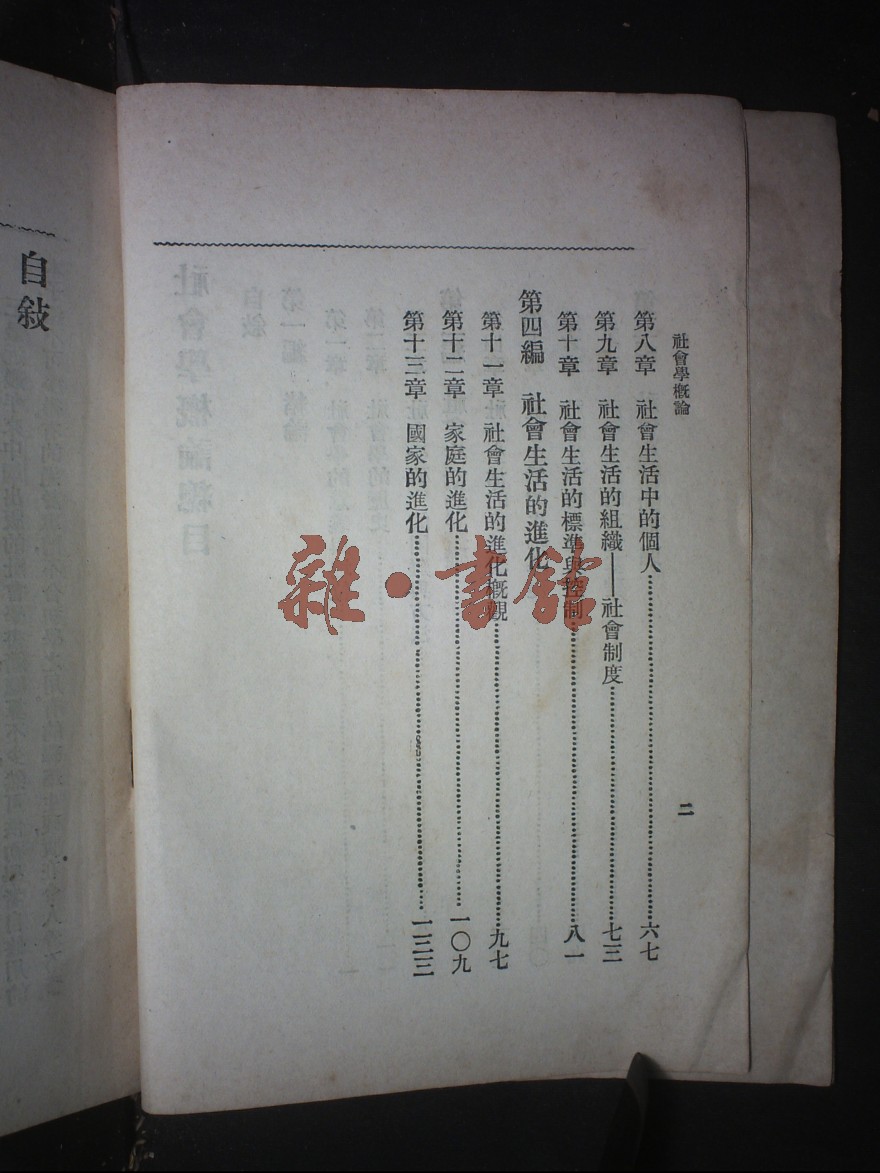 社會學概論
二
第八章 社會生活中的個人……六七
第九章 社會生活的組織——社會制度……七三
第十章 社會生活的標準與控制……八一
第四編 社會生活的進化
第十一章 社會生活的進化概觀……九七
第十二章 家庭的進化……一〇九
第十三章 國家的進化……一二三
自敍
雜·書館